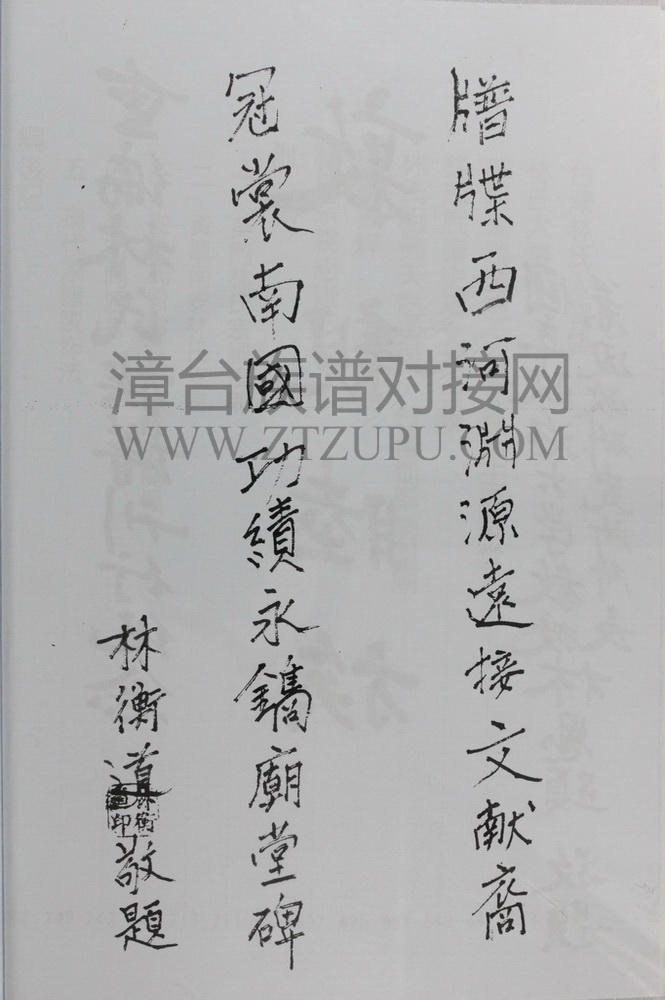 牘牒西河淵源遠接文献裔
冠裳南國功績永鐫廟堂碑
林衡道敬題
林衡道印
漳台族谱对接网
WWW.ZTZUPU.COM